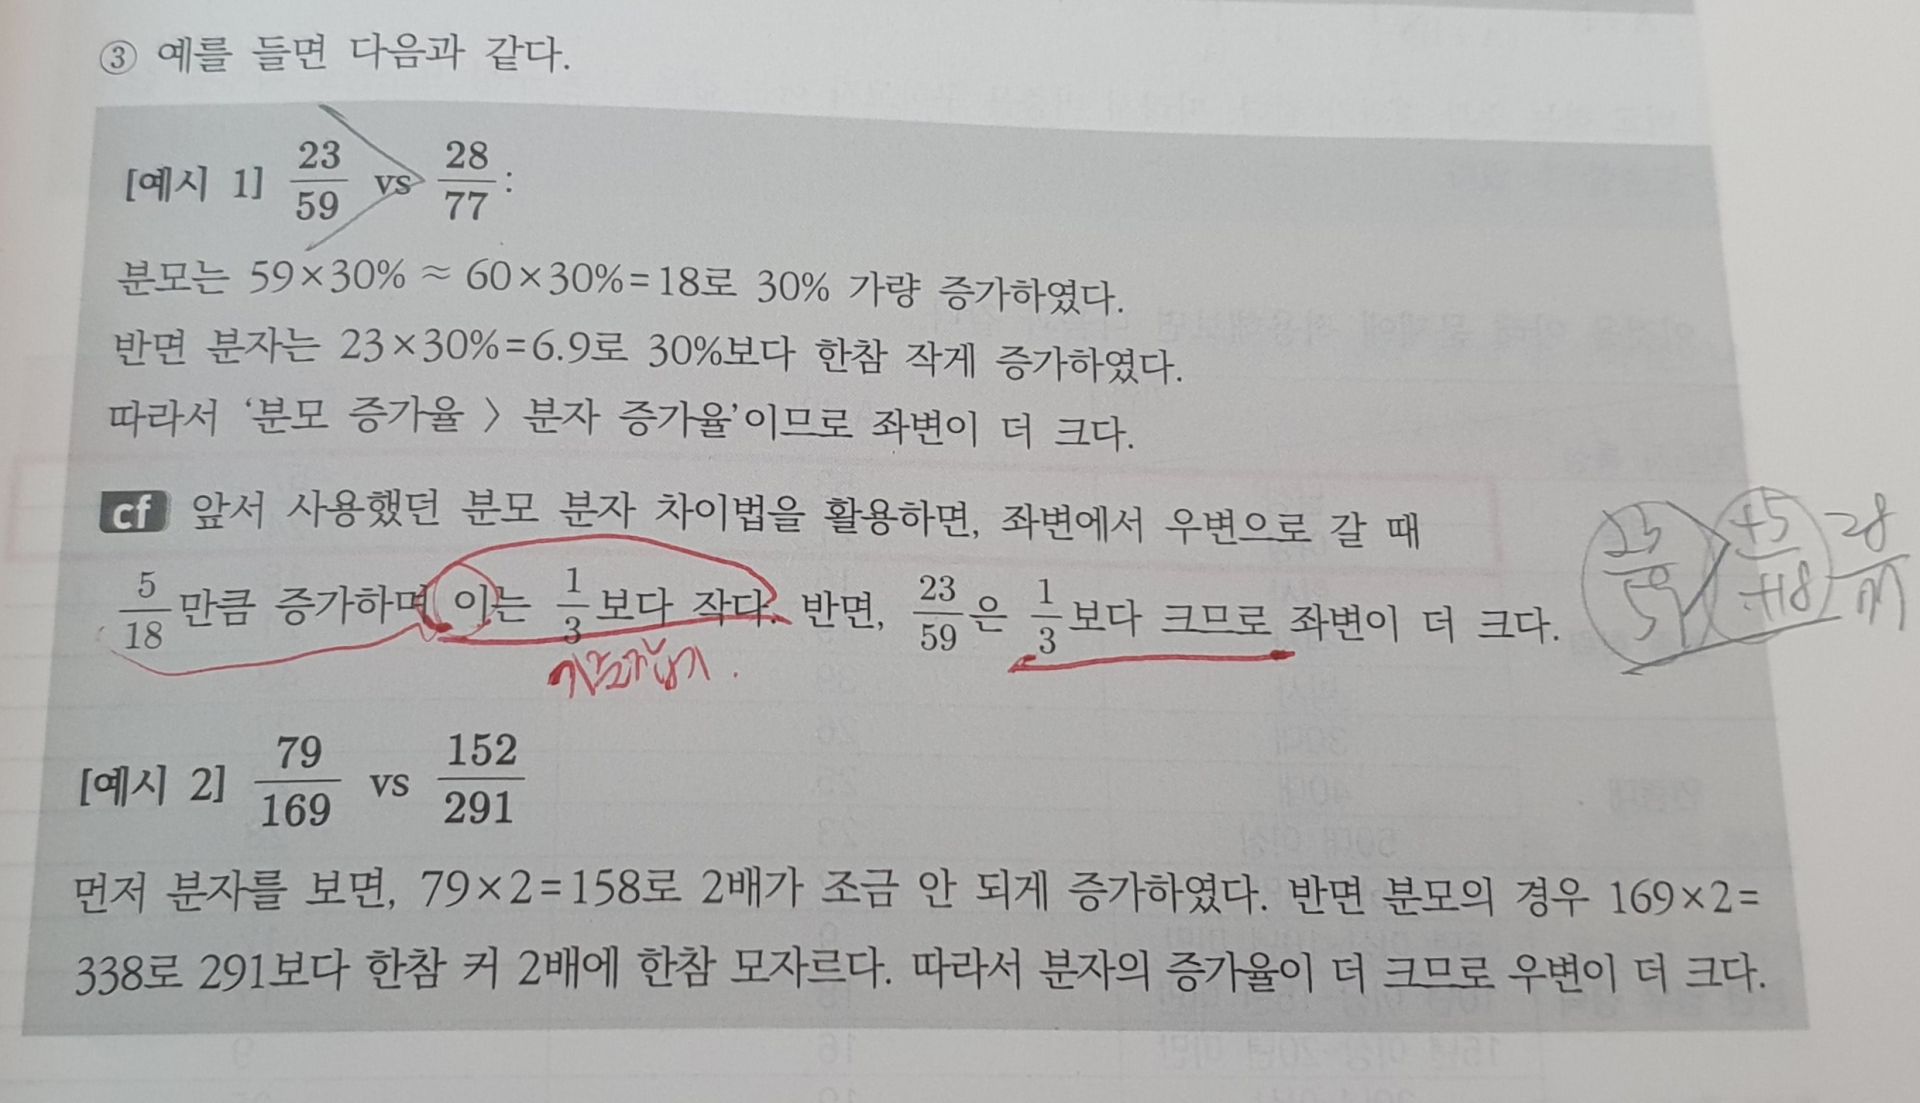 ③ 예를 들면 다음과 같다.
[예시 1] 23/59 vs 28/77 :
분모는 59×30% ≈ 60×30%=18로 30% 가량 증가하였다.
반면 분자는 23×30%=6.9로 30%보다 한참 작게 증가하였다.
따라서 ‘분모 증가율 〉 분자 증가율’이므로 좌변이 더 크다.
cf 앞서 사용했던 분모 분자 차이법을 활용하면, 좌변에서 우변으로 갈 때
5/18만큼 증가하며 이는 1/3보다 작다. 반면, 23/59은 1/3보다 크므로 좌변이 더 크다.
23/59 +5/+18 28/77
[예시 2] 79/169 vs 152/291
먼저 분자를 보면, 79×2=158로 2배가 조금 안 되게 증가하였다. 반면 분모의 경우 169×2=
338로 291보다 한참 커 2배에 한참 모자르다. 따라서 분자의 증가율이 더 크므로 우변이 더 크다.